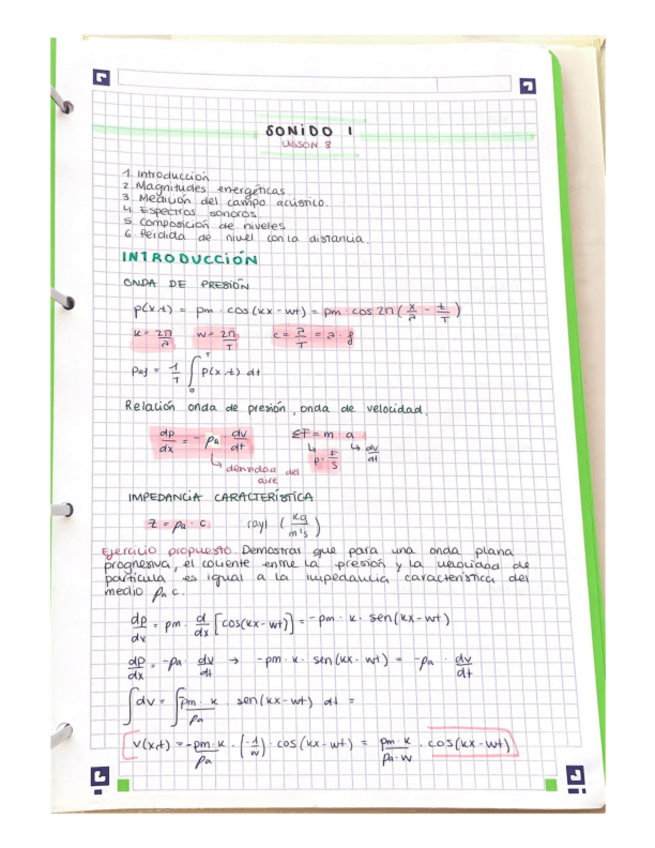 SONIDO 1
LESSON 8
1. Introducción
2. Magnitudes energéticas.
3. Medición del campo acústico.
4. Espectros sonoros
5. Composición de niveles
6. Pérdida de nivel con la distancia.
INTRODUCCIÓN
ONDA DE PRESIÓN
p(x,t) = pm · cos(kx - wt) = pm · cos 2π (x/λ - t/T)
k = 2π/λ w = 2π/T c = λ/T = λ · f
pef = 1/T ∫₀ᵀ p(x,t) dt
Relación onda de presión, onda de velocidad.
dp/dx = - ρa · dv/dt ΣF = m · a
p = F/S dv/dt
densidad del
aire
IMPEDANCIA CARACTERÍSTICA
Z = ρa · c rayl (kg/m²s)
Ejercicio propuesto. Demostrar que para una onda plana
progresiva, el cociente entre la presión y la velocidad de
partícula es igual a la impedancia característica del
medio ρa c.
dp/dx = pm · d/dx [cos(kx - wt)] = -pm · k · sen(kx - wt)
dp/dx = -ρa · dv/dt → -pm · k · sen(kx - wt) = -ρa · dv/dt
∫dv = ∫ pm · k/ρa · sen(kx - wt) dt =
v(x,t) = -pm · k/ρa · (-1/w) · cos(kx - wt) = pm · k/ρa · w · cos(kx - wt)